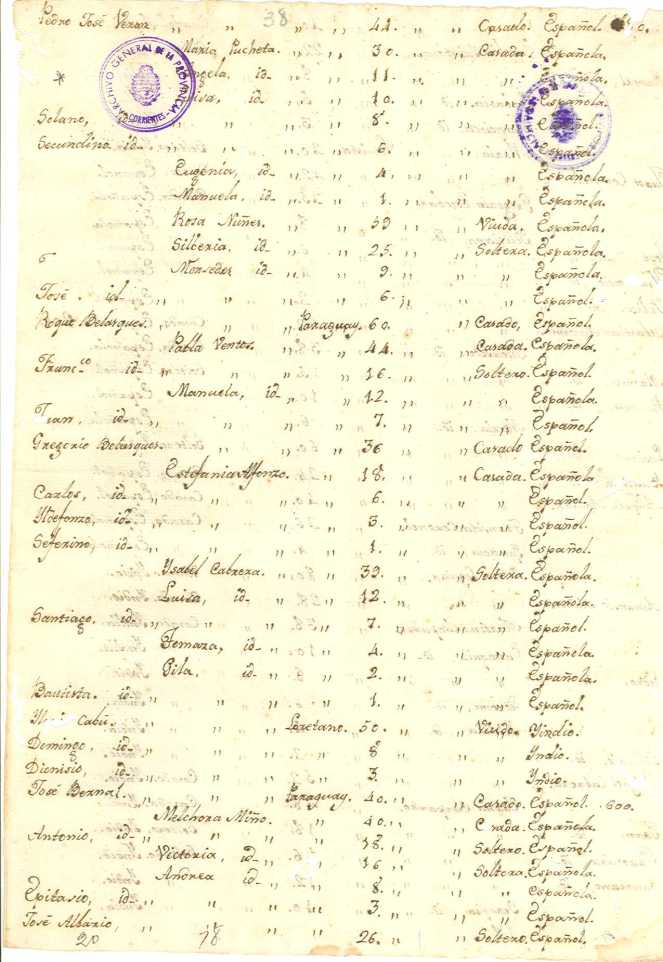 38
Pedro José Veron „ „ 44. „ „ Casado. Español.
Maria Pucheta. „ „ 30. „ „ Casada. Española.
id. „ „ 11. „ „ Española.
id. „ „ 10. „ „ Española.
Solano, id. „ „ 8. „ „ Español.
Secundino id. „ „ 6. „ „ Español.
Eugenia, id. „ „ 4. „ „ Española.
Manuela, id. „ „ 1. „ „ Española.
Rosa Nuñes. „ „ 39 „ „ Viuda. Española.
Silveria, id. „ „ 25. „ „ Soltera. Española.
Mersedes id. „ „ 9. „ „ Española.
José. id. „ „ „ 6. „ „ Español.
Roque Belasques. „ „ Paraguay. 60. „ Casado, Español.
Pabla Ventos. „ „ 44. „ „ Casada. Española.
Franc.co id. „ „ „ 16. „ „ Soltero. Español.
Manuela, id. „ „ 12. „ „ Española.
Juan, id. „ „ „ 7. „ „ Español.
Gregorio Belasques. „ „ „ 36 „ „ Casado Español.
Estefania Alfonzo. „ „ 18. „ „ Casada. Española
Carlos, id. „ „ „ 6. „ „ Español.
Yldefonzo, id. „ „ „ 3. „ „ Español.
Seferino, id. „ „ „ 1. „ „ Español.
Ysabel Cabrera. „ „ 39. „ „ Soltera. Española.
Luisa, id. „ „ 12. „ „ Española.
Santiago. id. „ „ „ 7. „ „ Español.
Tomaza, id. „ „ 4. „ „ Española.
Pila, id. „ „ 2. „ „ Española.
Bautista. id. „ „ „ 1. „ „ Español.
Cabú. „ „ Loretano. 50. „ „ Viudo. Yindio.
Domingo, id. „ „ „ 8 „ „ Yndio.
Dionisio, id. „ „ „ 3. „ „ Yndio.
José Bernal. „ „ Paraguay. 40. „ „ Casado. Español. 600.
Melchora Miño. „ „ 40. „ „ Casada. Española.
Antonio, id. „ „ „ 18. „ „ Soltero. Español.
Victoria, id. „ „ 16 „ „ Soltera. Española.
Andrea id. „ „ 8. „ „ Española.
Epitasio, id. „ „ „ 3. „ „ Español.
José Albario, „ „ „ 26. „ „ Soltero. Español.
20 18
ARCHIVO GENERAL DE LA PROVINCIA
CORRIENTES